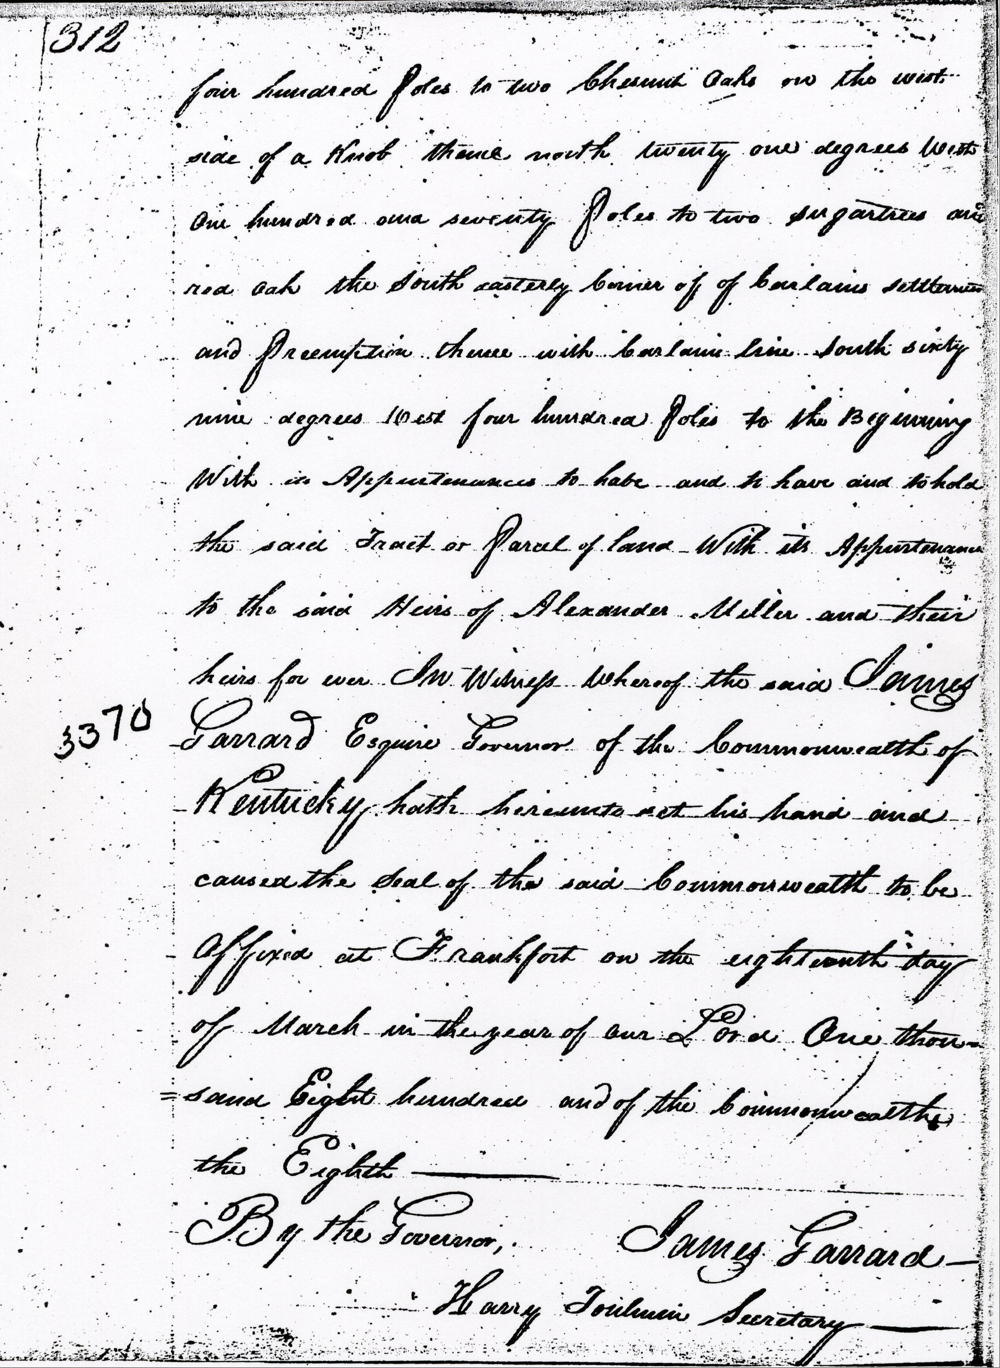 312
four hundred Poles to two Chesnut Oaks on the west
side of a Knob thence north twenty one degrees West
One hundred and seventy Poles to two sugartrees and
red oak the South easterly Corner of of Carlains settlement
and Preemption thence with Carlains line South sixty
nine degrees West four hundred Poles to the Beginning
With its Appurtenances to habe and to have and to hold
the said Tract or Parcel of land With its Appurtenance
to the said Heirs of Alexander Miller and their
heirs for ever In Witness Whereof the said James
3370
Garrard Esquire Governor of the Commonwealth of
Kentucky hath hereunto set his hand and
caused the Seal of the said Commonwealth to be
Affixed at Frankfort on the eighteenth day
of March in the year of our Lord One thou-
=sand Eight hundred and of the Commonwealth
the Eighth
By the Governor, James Garrard
Harry Toulmin Secretary